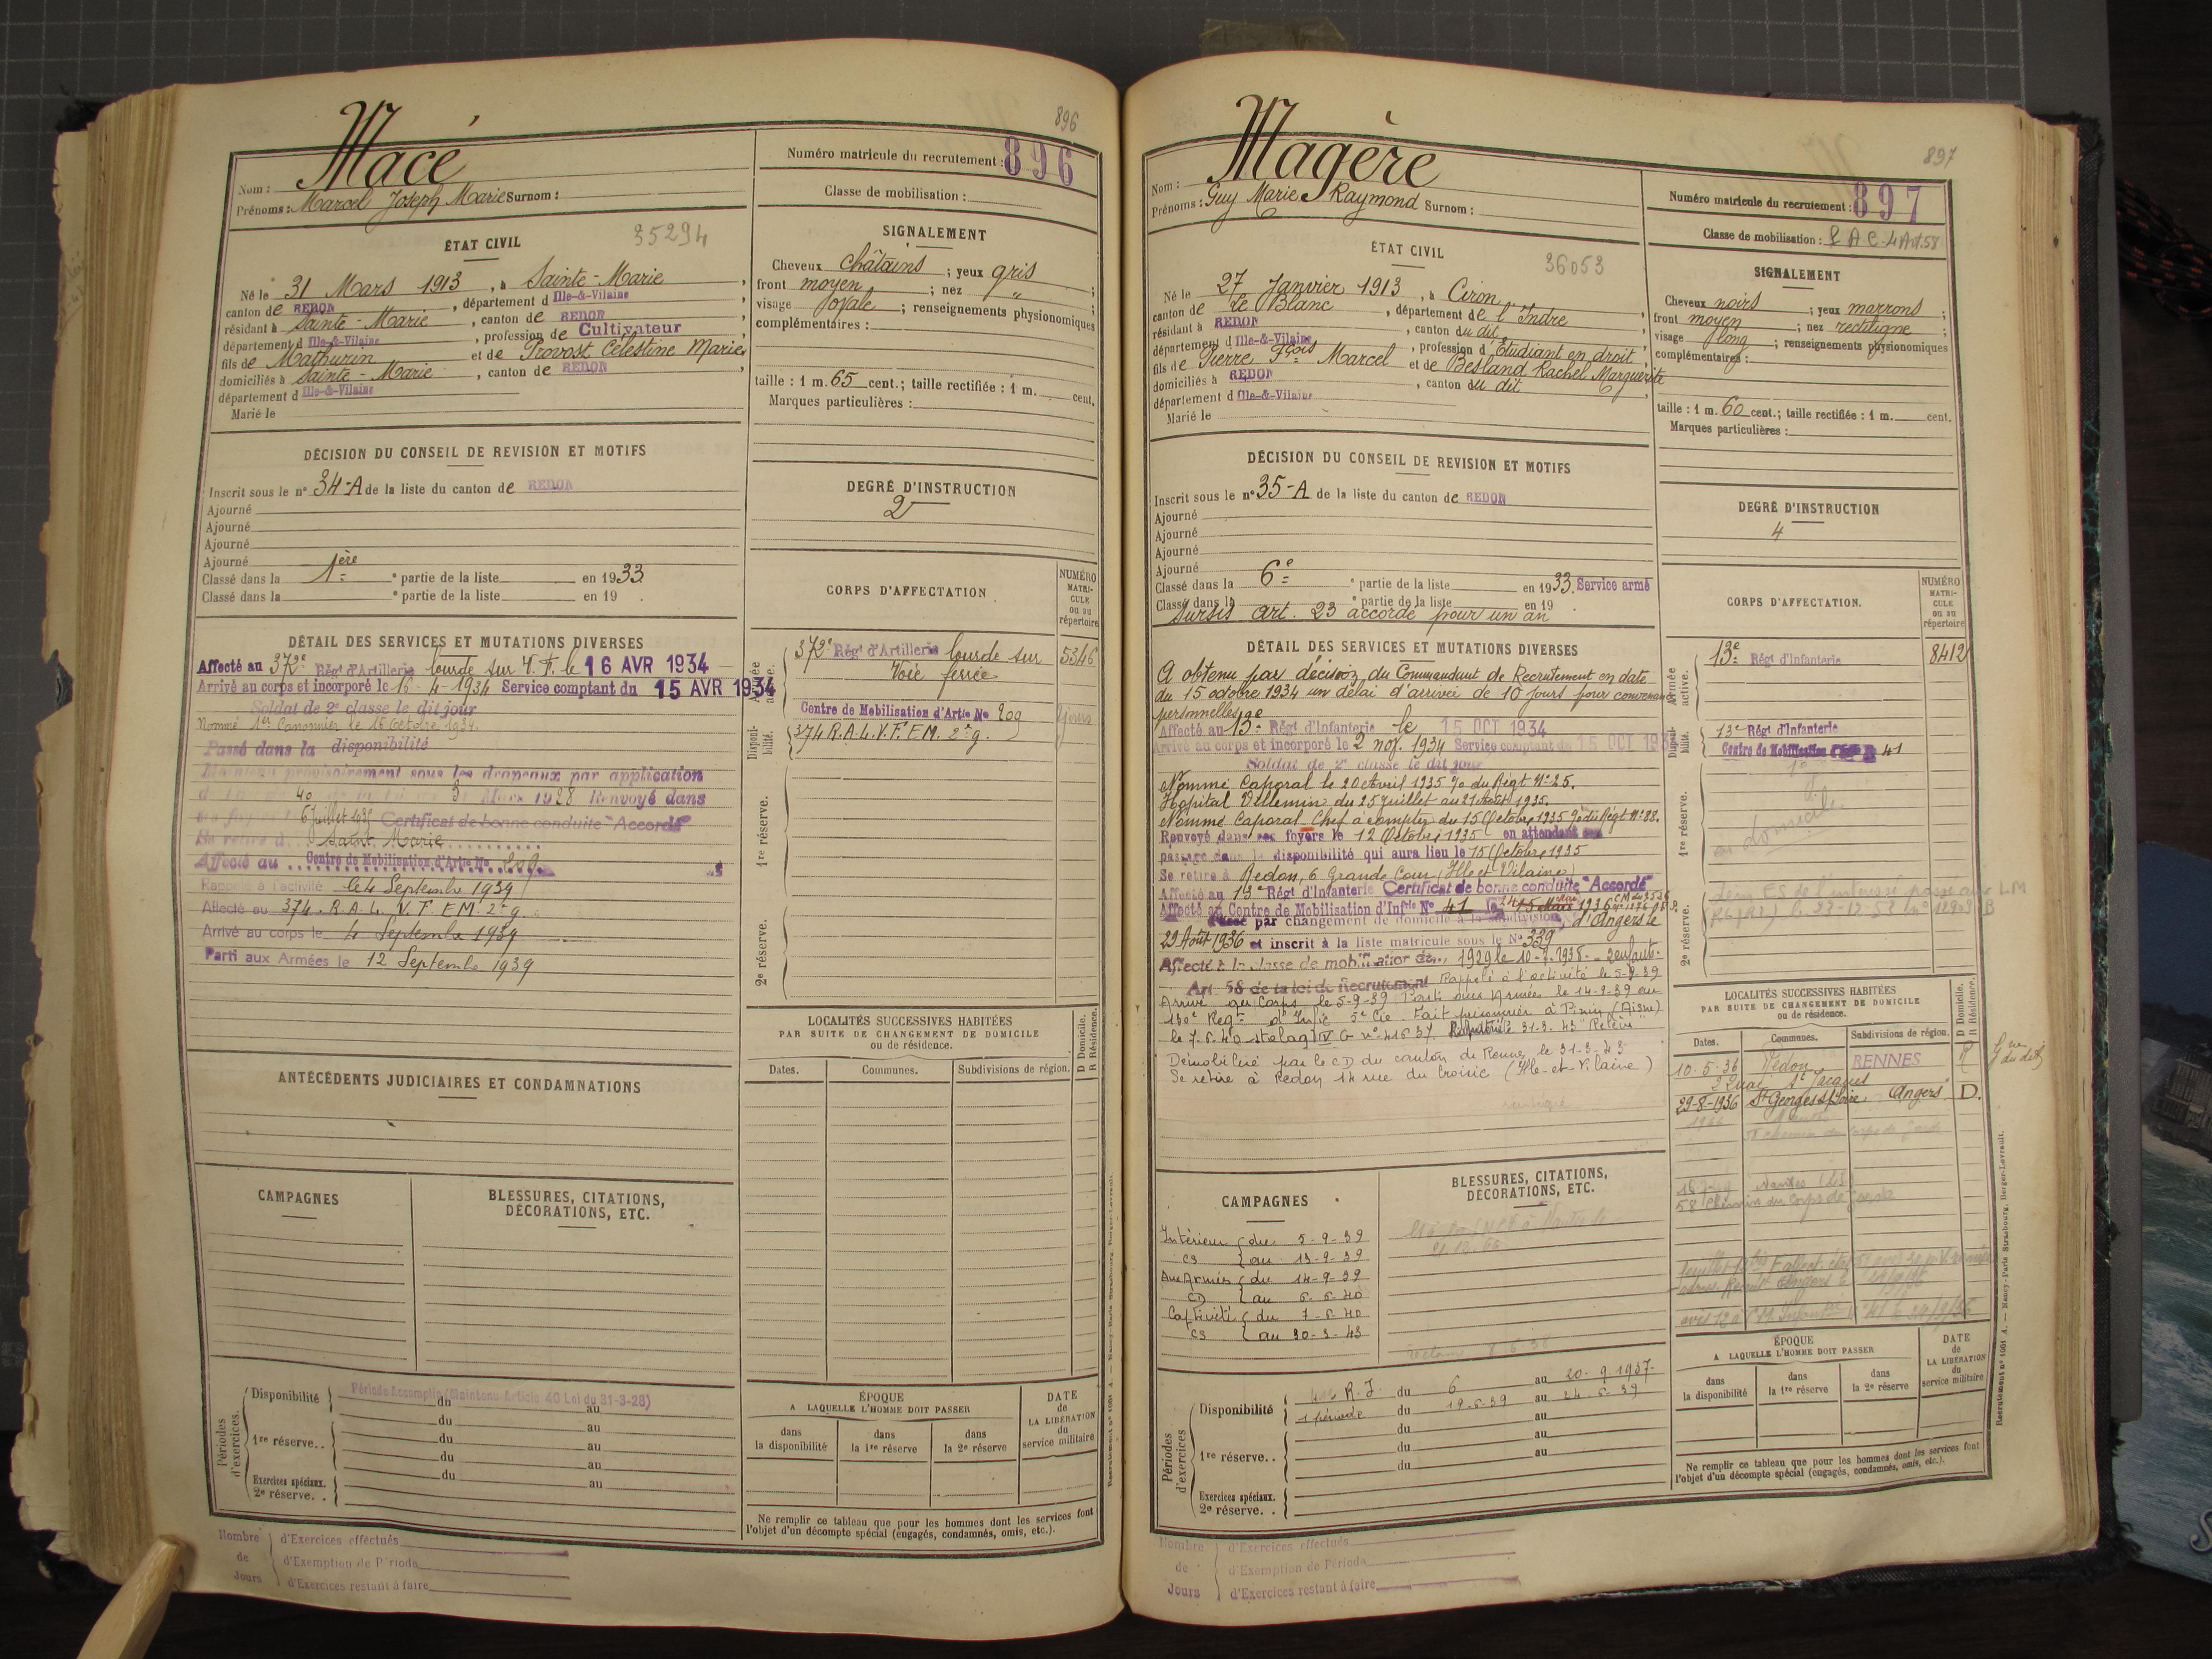 896
Macé
Nom :
Prénoms : Marcel Joseph Marie Surnom :
Numéro matricule du recrutement : 896
Classe de mobilisation :
ÉTAT CIVIL
35294
Né le 31 Mars 1913, à Sainte-Marie
canton de REDON, département d Ille-&-Vilaine
résidant à Sainte-Marie, canton de REDON
département d Ille-&-Vilaine, profession de Cultivateur
fils de Mathurin et de Provost Célestine Marie
domiciliés à Sainte-Marie, canton de REDON
département d Ille-&-Vilaine
Marié le
SIGNALEMENT
Cheveux châtains ; yeux gris
front moyen ; nez " ;
visage ovale ; renseignements physionomiques
complémentaires :
taille : 1 m. 65 cent.; taille rectifiée : 1 m. cent.
Marques particulières :
DÉCISION DU CONSEIL DE REVISION ET MOTIFS
Inscrit sous le n° 34-A de la liste du canton de REDON
Ajourné
Ajourné
Ajourné
Ajourné
Classé dans la 1ère e partie de la liste en 1933
Classé dans la e partie de la liste en 19 .
DEGRÉ D'INSTRUCTION
2
DÉTAIL DES SERVICES ET MUTATIONS DIVERSES
Affecté au 372e Régt d'Artillerie lourde sur V. F. le 16 AVR 1934
Arrivé au corps et incorporé le 16-4-1934 Service comptant du 15 AVR 1934
Soldat de 2e classe le dit jour
Nommé 1er Canonnier le 16 Octobre 1934.
Passé dans la disponibilité
Maintenu provisoirement sous les drapeaux par application
40 31 Mars 1928 Renvoyé dans
6 Juillet 1935 Certificat de bonne conduite "Accordé"
Se retire à Sainte Marie
Affecté au Centre de Mobilisation d'Artie No 209
Rappelé à l'activité le 4 Septembre 1939
Affecté au 374. R.A.L. V.F. EM. 2e g.
Arrivé au corps le 4 Septembre 1939
Parti aux Armées le 12 Septembre 1939
CORPS D'AFFECTATION
NUMÉRO MATRICULE ou au répertoire
Armée active.
372e Régt d'Artillerie lourde sur
Voie ferrée
5346
Disponibilité.
Centre de Mobilisation d'Artie No 209
374 R.A.L.V.F. EM. 2e g.
1re réserve.
2e réserve.
ANTÉCÉDENTS JUDICIAIRES ET CONDAMNATIONS
LOCALITÉS SUCCESSIVES HABITÉES
PAR SUITE DE CHANGEMENT DE DOMICILE
ou de résidence.
D Domicile.
R Résidence.
Dates. Communes. Subdivisions de région.
CAMPAGNES
BLESSURES, CITATIONS,
DÉCORATIONS, ETC.
Périodes d'exercices.
Disponibilité
Période Accomplie (Maintenu Article 40 Loi du 31-3-28)
du au
du au
1re réserve.. du au
du au
Exercices spéciaux. du au
2e réserve. .
ÉPOQUE
A LAQUELLE L'HOMME DOIT PASSER
dans la disponibilité
dans la 1re réserve
dans la 2e réserve
DATE de LA LIBÉRATION du service militaire
Ne remplir ce tableau que pour les hommes dont les services font
l'objet d'un décompte spécial (engagés, condamnés, omis, etc.).
Nombre de Jours
d'Exercices effectués
d'Exemption de Période
d'Exercices restant à faire
897
Magère
Nom :
Prénoms : Guy Marie Raymond Surnom :
Numéro matricule du recrutement : 897
Classe de mobilisation :
ÉTAT CIVIL
36053
Né le 27 Janvier 1913, à Ciron
canton de Le Blanc, département de l'Indre
résidant à REDON, canton du dit
département d Ille-&-Vilaine, profession d'Etudiant en droit
fils de Pierre Fçois Marcel et de Besland Rachel Marguerite
domiciliés à REDON, canton du dit
département d Ille-&-Vilaine
Marié le
SIGNALEMENT
Cheveux noirs ; yeux marrons ;
front moyen ; nez rectiligne ;
visage long ; renseignements physionomiques
complémentaires :
taille : 1 m. 60 cent.; taille rectifiée : 1 m. cent.
Marques particulières :
DÉCISION DU CONSEIL DE REVISION ET MOTIFS
Inscrit sous le n° 35-A de la liste du canton de REDON
Ajourné
Ajourné
Ajourné
Ajourné
Classé dans la 6e e partie de la liste en 1933. Service armé
Classé dans la e partie de la liste en 19 .
Sursis art. 23 accordé pour un an
DEGRÉ D'INSTRUCTION
4
DÉTAIL DES SERVICES ET MUTATIONS DIVERSES
A obtenu par décision du Commandant de Recrutement en date
du 15 octobre 1934 un délai d'arrivée de 10 jours pour convenances
personnelles
Affecté au 13e Régt d'Infanterie le 15 OCT 1934
Arrivé au corps et incorporé le 2 nov. 1934 Service comptant du 15 OCT 1934
Soldat de 2e classe le dit jour
Nommé Caporal le 20 Avril 1935 % du Régt N° 25.
Hôpital Villemin du 25 Juillet au 21 Août 1935.
Nommé Caporal Chef à compter du 15 Octobre 1935 du Régt N° 88.
Renvoyé dans ses foyers le 12 Octobre 1935 en attendant son
passage dans la disponibilité qui aura lieu le 15 Octobre 1935
Se retire à Redon, 6 Grande Cour (Ille et Vilaine)
Affecté au 13e Régt d'Infanterie Certificat de bonne conduite "Accordé"
Affecté au Centre de Mobilisation d'Infie No 41 le 15 Mai 1936
Passé par changement de domicile à la subdivision d'Angers le
29 Août 1936 et inscrit à la liste matricule sous le No 339
Affecté à la classe de mobilisation de 1929 le 10-2-1938 - 2 enfants.
Art 58 de la loi de Recrutement Rappelé à l'activité le 5-9-39
Arrivé au Corps le 5-9-39 Parti aux Armées le 14-9-39 au
130e Regt d'Infie 5e Cie. Fait prisonnier à Pinon (Aisne)
le 7-6-40 stalag IV G n° 41637 Rapatrié le 31-3-43 "Relève"
Démobilisé par le CD du canton de Rennes le 31-3-43
Se retire à Redon 14 rue du Croisic (Ille-et-Vilaine)
CORPS D'AFFECTATION.
NUMÉRO MATRICULE ou au répertoire
Armée active.
13e Régt d'Infanterie
8412
Disponibilité.
13e Régt d'Infanterie
Centre de Mobilisation 41
1re réserve.
2e réserve.
LOCALITÉS SUCCESSIVES HABITÉES
PAR SUITE DE CHANGEMENT DE DOMICILE
ou de résidence.
D Domicile.
R Résidence.
Dates. Communes. Subdivisions de région.
10-5-36 Redon RENNES R
2 Quai St Jacques
29-8-1936 St Georges s/Loire Angers D.
Nantes
58 Chemin du Corps de Garde
CAMPAGNES
Intérieur du 5-9-39
CS au 13-9-39
Aux Armées du 14-9-39
CD au 6-6-40
Captivité du 7-6-40
CS au 30-3-43
BLESSURES, CITATIONS,
DÉCORATIONS, ETC.
Périodes d'exercices
Disponibilité
R.I. du 6 au 20-9-1937-
1 période du 19-6-39 au 24-6-39
du au
1re réserve.. du au
du au
Exercices spéciaux.
2e réserve. .
ÉPOQUE
A LAQUELLE L'HOMME DOIT PASSER
dans la disponibilité
dans la 1re réserve
dans la 2e réserve
DATE de LA LIBÉRATION du service militaire
Ne remplir ce tableau que pour les hommes dont les services font
l'objet d'un décompte spécial (engagés, condamnés, omis, etc.).
Nombre de Jours
d'Exercices effectués
d'Exemption de Période
d'Exercices restant à faire